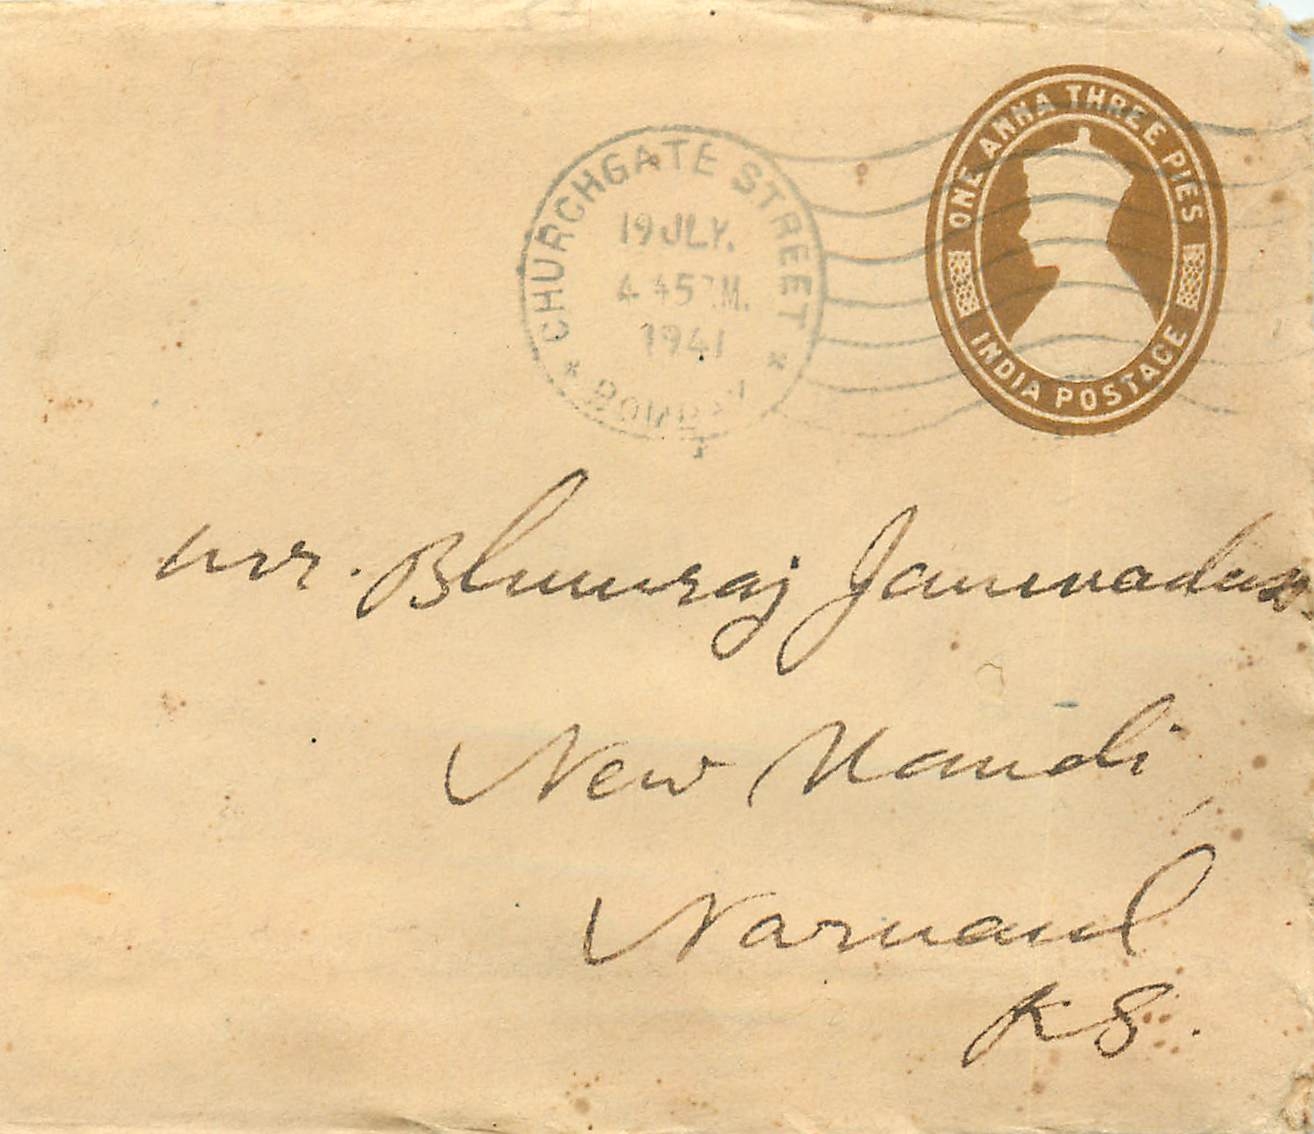 ONE ANNA THREE PIES
INDIA POSTAGE
CHURCHGATE STREET
19 JLY.
4 45 P.M.
1941
BOMBAY
Mr. Bhimraj Jamnadas
New Mandi
Narnaul